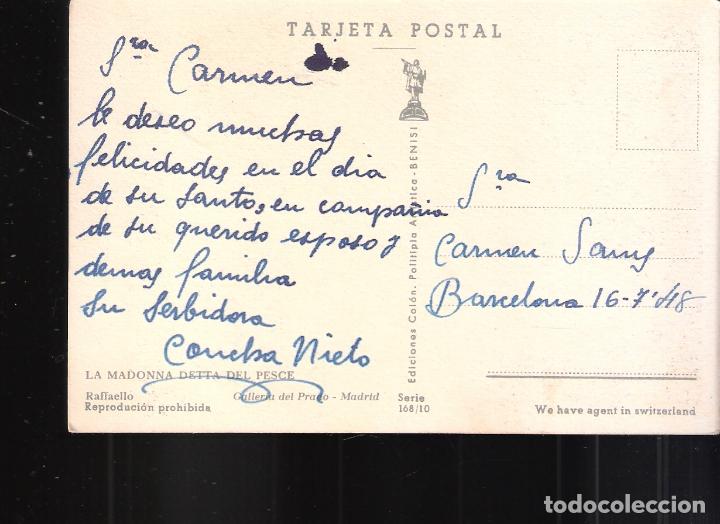 TARJETA POSTAL
Sra Carmen
le deseo muchas
felicidades en el dia
de su Santo, en compañia
de su querido esposo y
demas familia
Su Serbidora
Concha Nieto
Sra
Carmen Sans
Barcelona 16-7-48
Ediciones Colón. Politipia Artística - BENISI
LA MADONNA DETTA DEL PESCE
Raffaello
Galleria del Prado - Madrid
Reproducción prohibida
Serie
168/10
We have agent in switzerland
todocoleccion